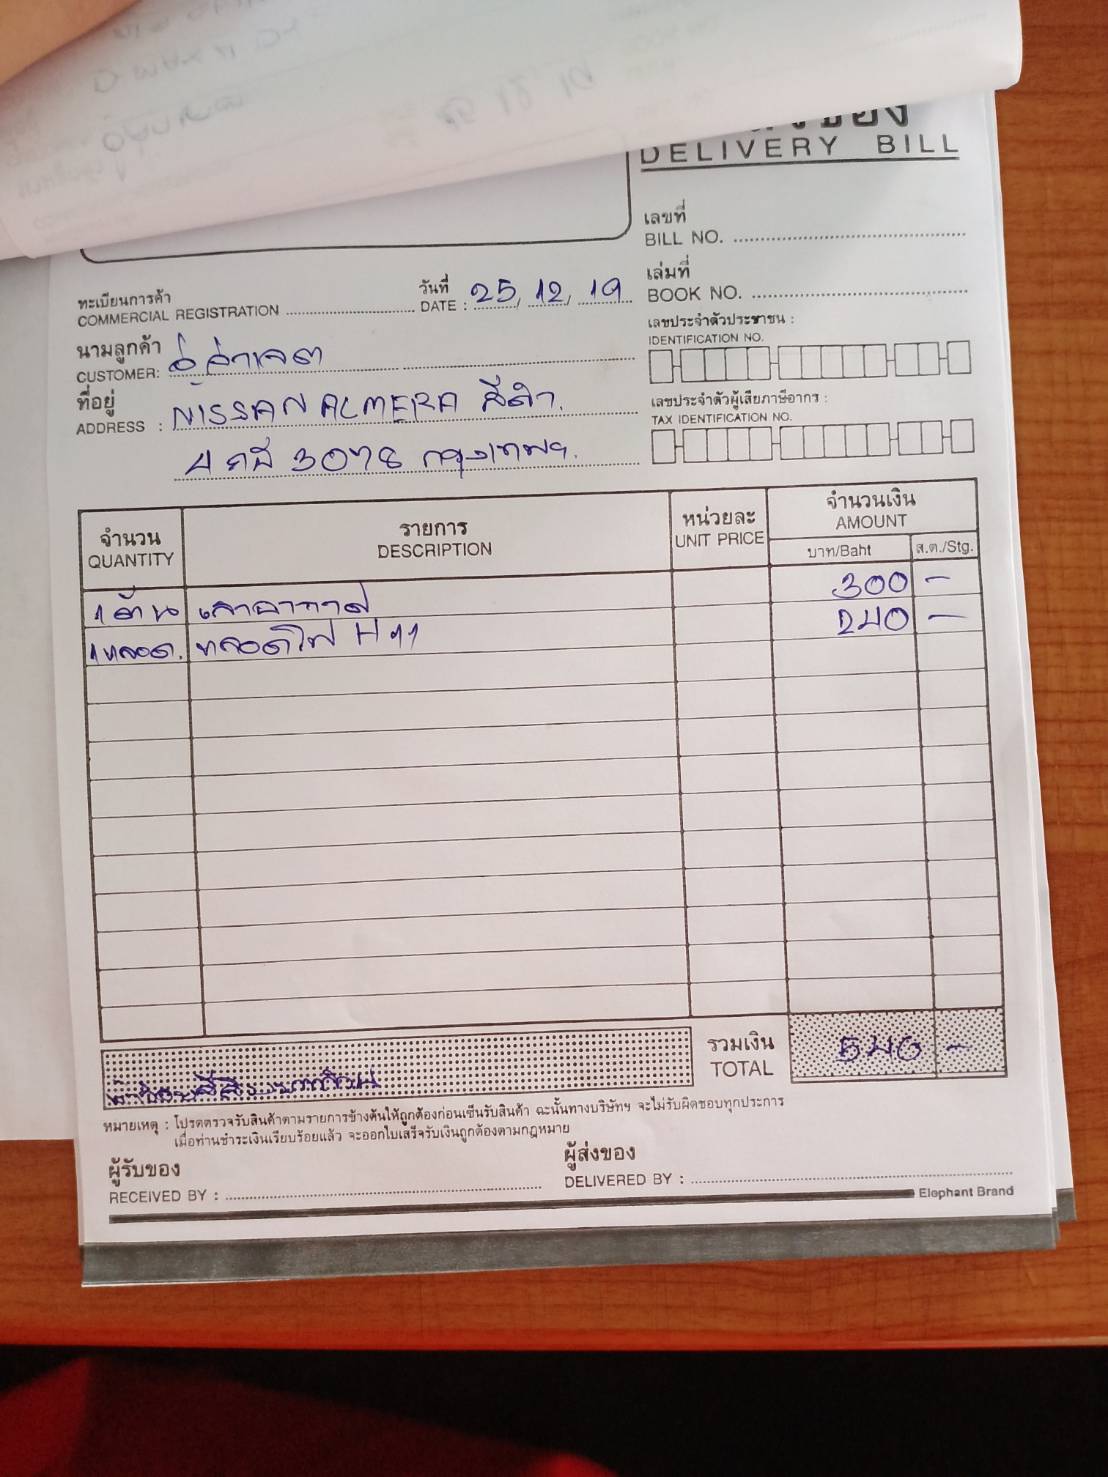 DELIVERY BILL
เลขที่
BILL NO.
ทะเบียนการค้า
COMMERCIAL REGISTRATION
วันที่
DATE : 25, 12, 19
เล่มที่
BOOK NO.
นามลูกค้า
CUSTOMER:
เลขประจำตัวประชาชน :
IDENTIFICATION NO.
ที่อยู่
ADDRESS : NISSAN ALMERA สีดำ.
เลขประจำตัวผู้เสียภาษีอากร :
TAX IDENTIFICATION NO.
3078 กรุงเทพฯ.
จำนวน
QUANTITY
รายการ
DESCRIPTION
หน่วยละ
UNIT PRICE
จำนวนเงิน
AMOUNT
บาท/Baht
ส.ต./Stg.
1 ต้น เสาอากาศ 300 -
1 หลอด. หลอดไฟ H11 240 -
รวมเงิน
TOTAL
540 -
หมายเหตุ : โปรดตรวจรับสินค้าตามรายการข้างต้นให้ถูกต้องก่อนเซ็นรับสินค้า ฉะนั้นทางบริษัทฯ จะไม่รับผิดชอบทุกประการ
เมื่อท่านชำระเงินเรียบร้อยแล้ว จะออกใบเสร็จรับเงินถูกต้องตามกฎหมาย
ผู้รับของ
RECEIVED BY :
ผู้ส่งของ
DELIVERED BY :
Elephant Brand